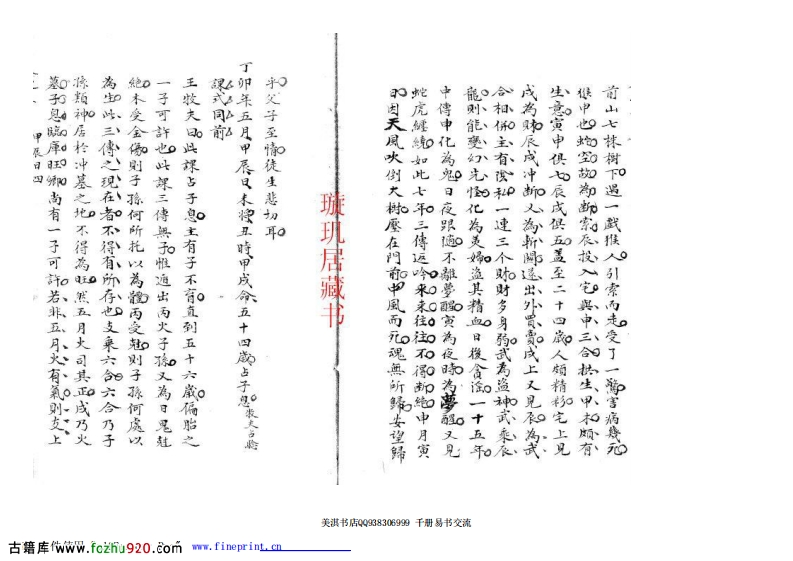 前山七株樹下過一戲猴人引索而走受了一驚害病幾死
猴申也蛇空故為斷索辰投入宅與申三合拱生甲木頗有
生意寅申俱七辰戌俱五蓋至二十四歲人頗精彩宅上見
戌為財辰戌冲斷又為斬關遂出外買賣戌上又見辰為武
合相併主有陰私一連三个財財多身弱武為盜神武乘辰
龍則能變幻先怪化為美婦盜其精血日後貪淫一十五年
中傳申化為鬼日夜跟隨不離夢醒寅為夜時為夢醒又見
蛇虎纏繞如此七年三傳返吟來來往往不得斷絕申月寅
日因天風吹倒大樹壓在門前中風而死魂無所歸安望歸
乎父子至情徒生悲切耳
丁卯年五月甲辰日未將丑時甲戌命五十四歲占子息牧夫占驗
課式同前
王牧夫曰此課占子息主有子不育直到五十六歲偏胎之
一子可許也此課三傳無子惟遁出丙火子孫又為日鬼尅
絕木受金傷則子孫何所托以為體丙受尅則子孫何處以
為生此三傳之現在者不得有所存也支乘六合六合乃子
孫類神居於冲墓之地不得為旺然五月火司其正戌乃火
墓子息臨庫旺鄉尚有一子可許若非五月火有氣則支上
甲辰日四
璇玑居藏书
美淇书店QQ938306999 千册易书交流
古籍库 www.fozhu920.com
www.fineprint.cn